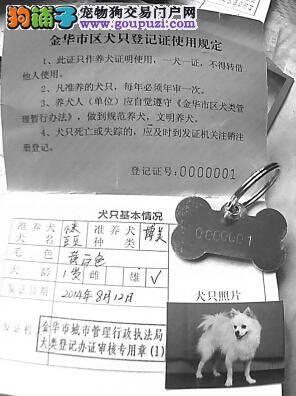 狗铺子 宠物狗交易门户网
GouPuZi.com
金华市区犬只登记证使用规定
1、此证只作养犬证明使用,一犬一证,不得转借
他人使用。
2、凡准养的犬只,每年必须年审一次。
3、养犬人(单位)应自觉遵守《金华市区犬类管
理暂行办法》,做到规范养犬,文明养犬。
4、犬只死亡或失踪的,应及时到发证机关注销注
册登记。
登记证号:0000001
犬只基本情况
准养犬
犬名 豆豆
准养犬种类 博美
毛色 黄白色
犬龄 1岁 雌 雄 √
发证日期 2014年8月12日
发证机
金华市城市管理行政执法局
犬类登记办证审核专用章(1)
0000001
犬只照片